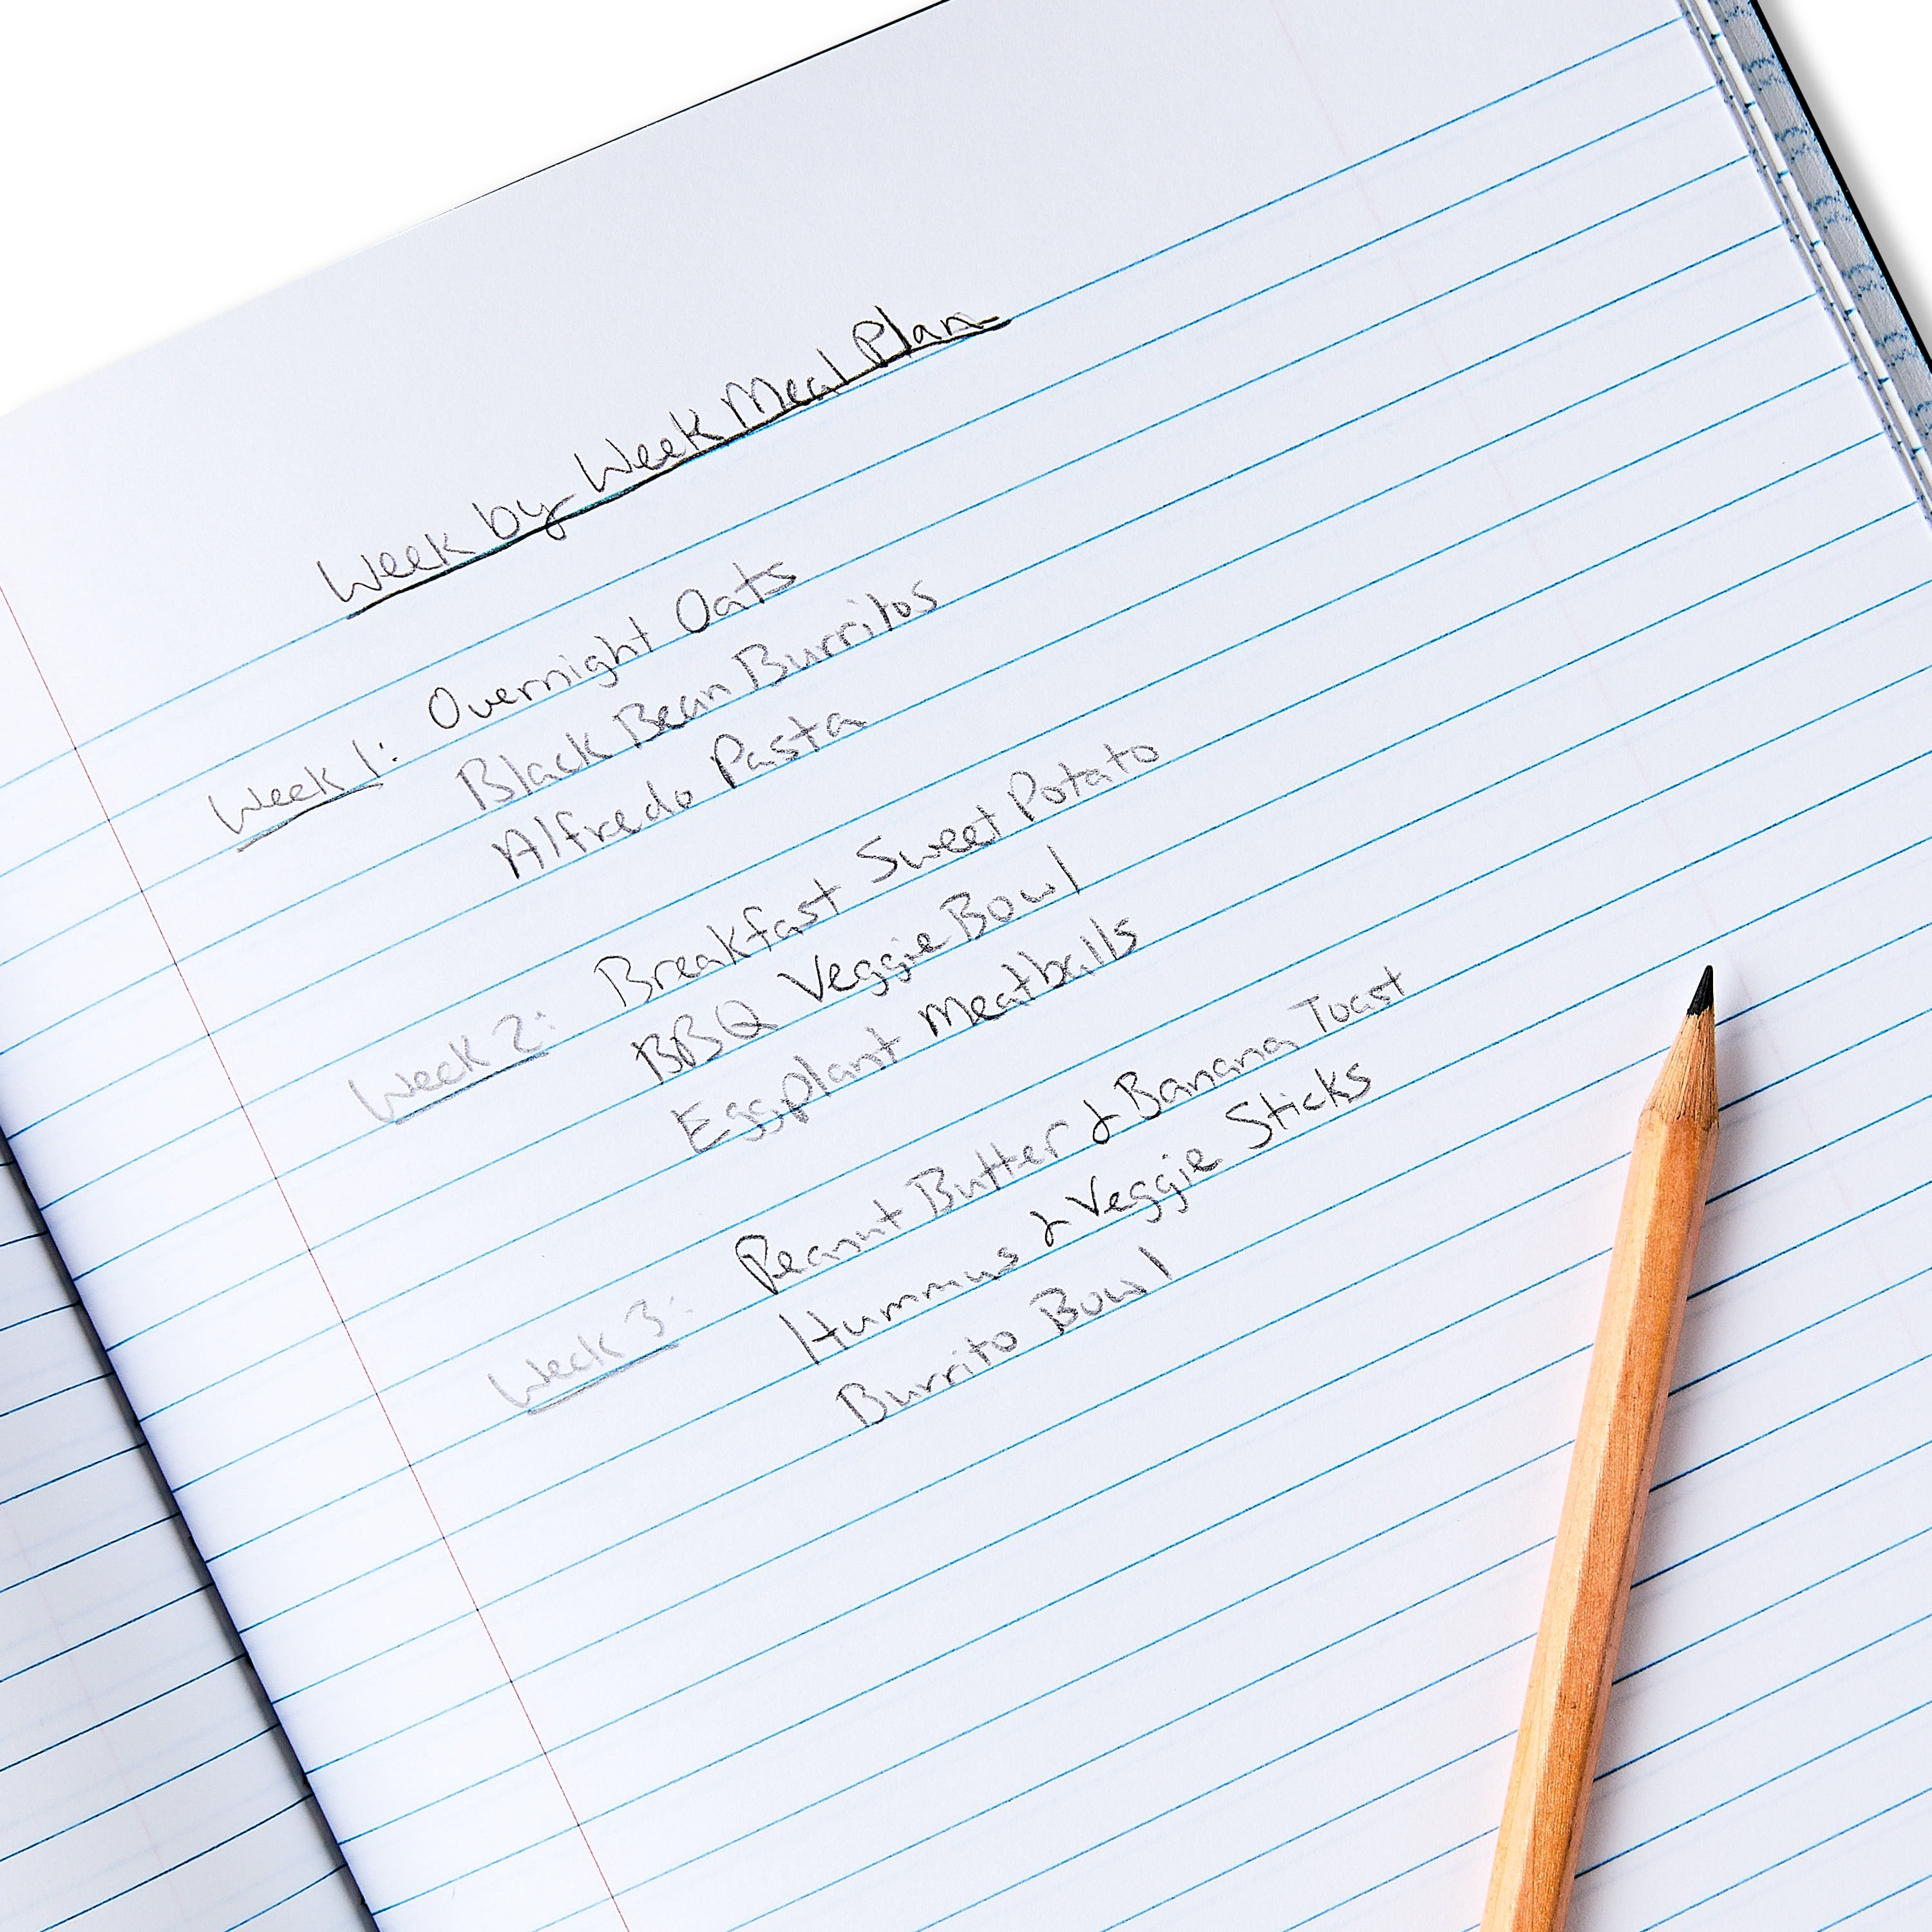 Week by Week Meal Plan
Week 1: Overnight Oats
Black Bean Burritos
Alfredo Pasta
Week 2: Breakfast Sweet Potato
BBQ Veggie Bowl
Eggplant Meatballs
Week 3: Peanut Butter & Banana Toast
Hummus & Veggie Sticks
Burrito Bowl